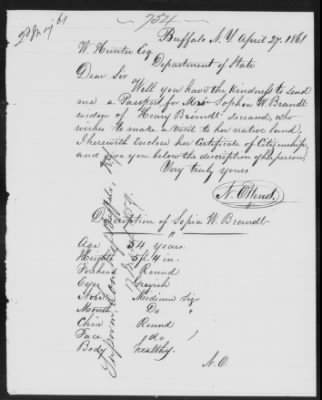 - 754 -
Buffalo N.Y. April 27. 1861
W. Hunter Esq
Department of State
Dear Sir
Will you have the kindness to send
me a Passport for Mrs Sophia W. Brandt
widow of Henry Brandt deceased, who
wishes to make a visit to her native land,
I herewith Enclose her Certificate of Citizenship
and give you below the description of her person,
Very truly yours
Description of Sopia W. Brandt
Age 54 years.
Height 5 ft in.
Forehead Round
Eyes Greyish
Nose Medium
Mouth Do
Chin Round
Face do
Body healthy.
N. O.